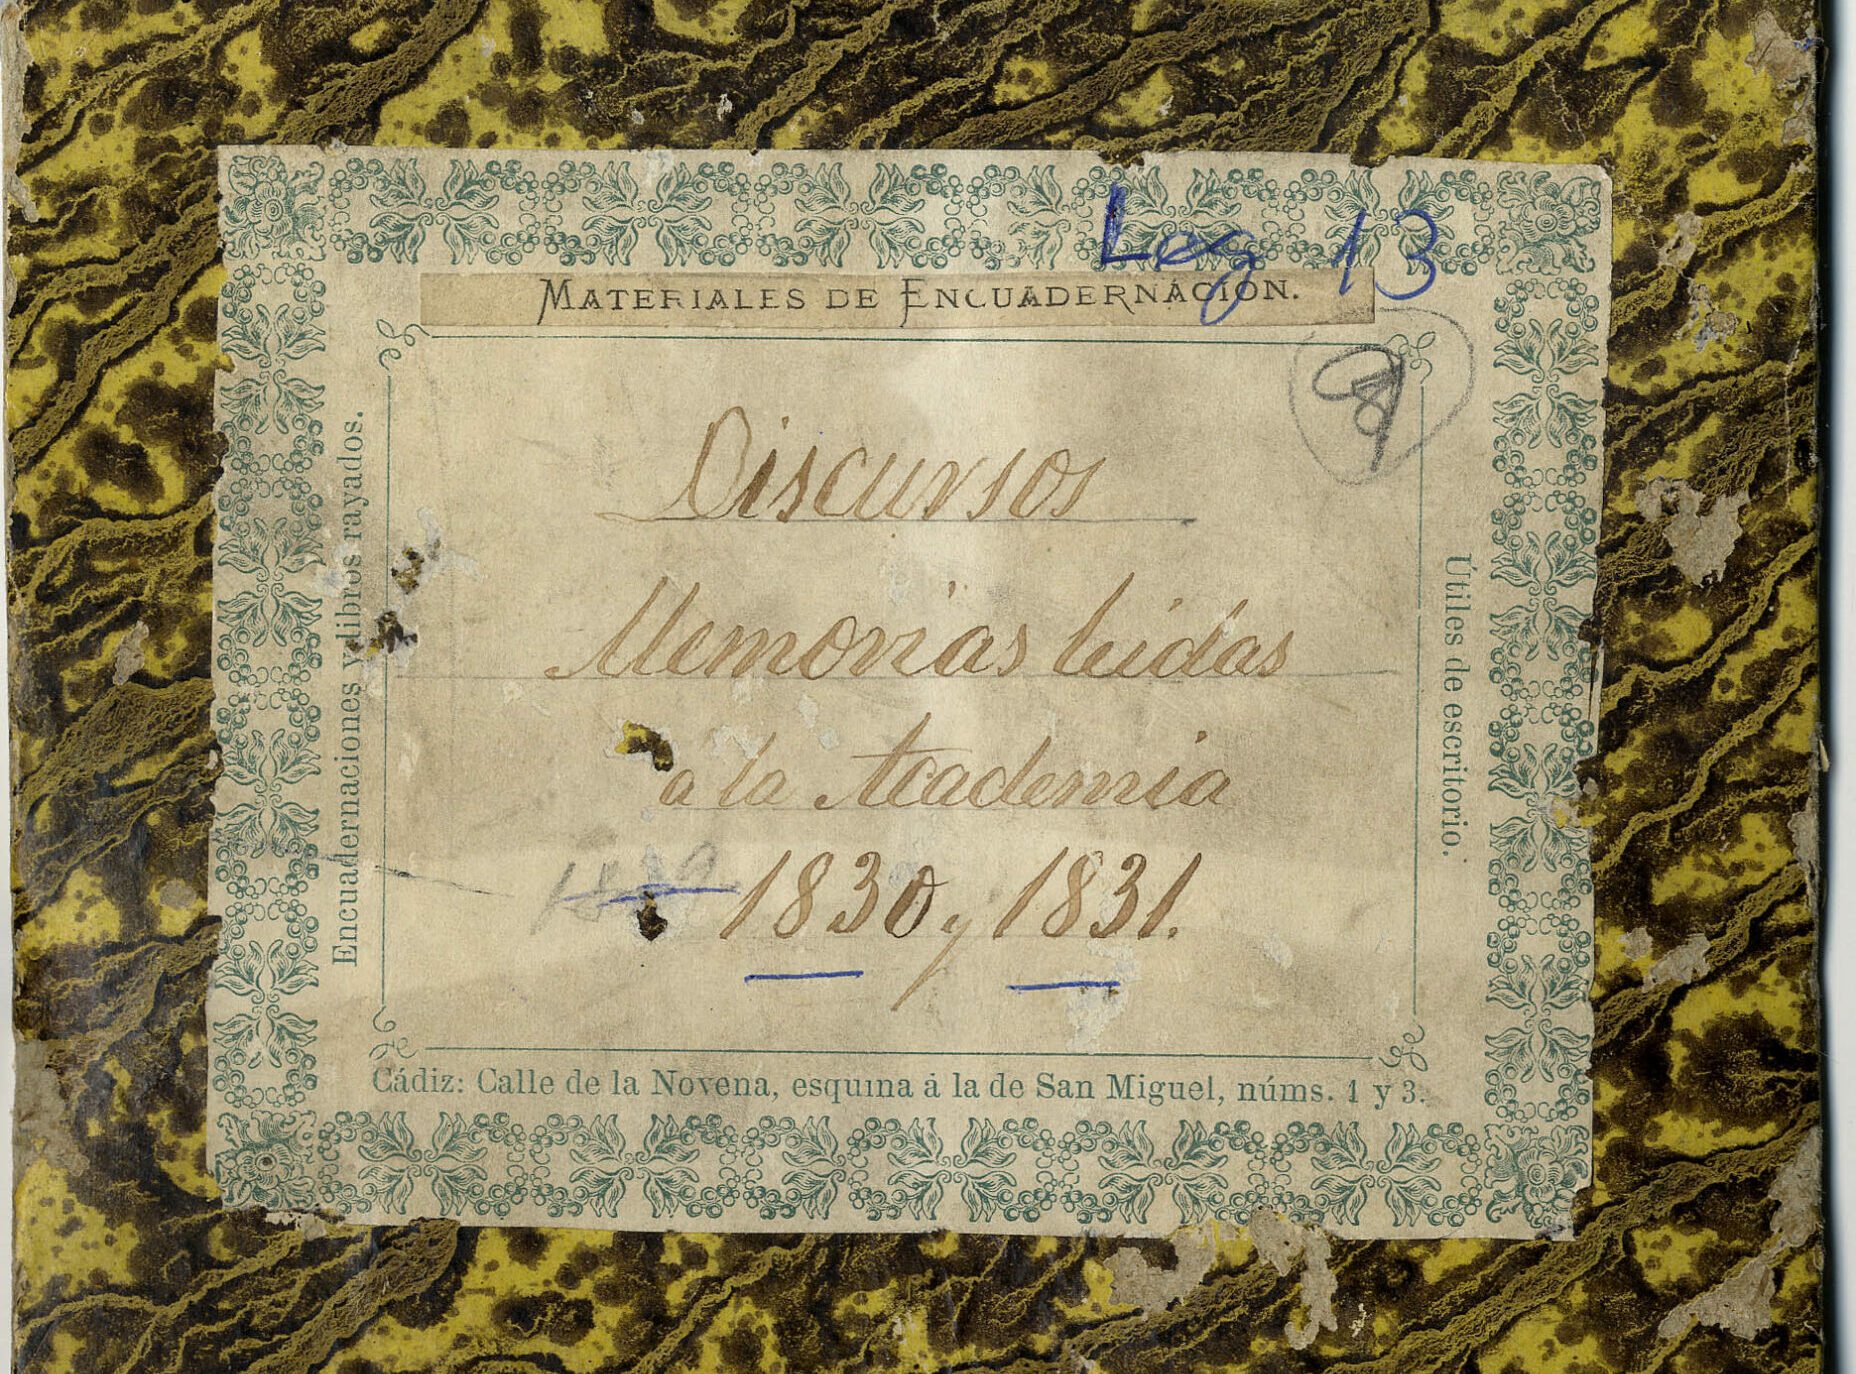 Leg 13
MATERIALES DE ENCUADERNACION.
Discursos
Memorias leidas
á la Academia
1830 y 1831.
Encuadernaciones y libros rayados.
Útiles de escritorio.
Cádiz: Calle de la Novena, esquina á la de San Miguel, núms. 1 y 3.